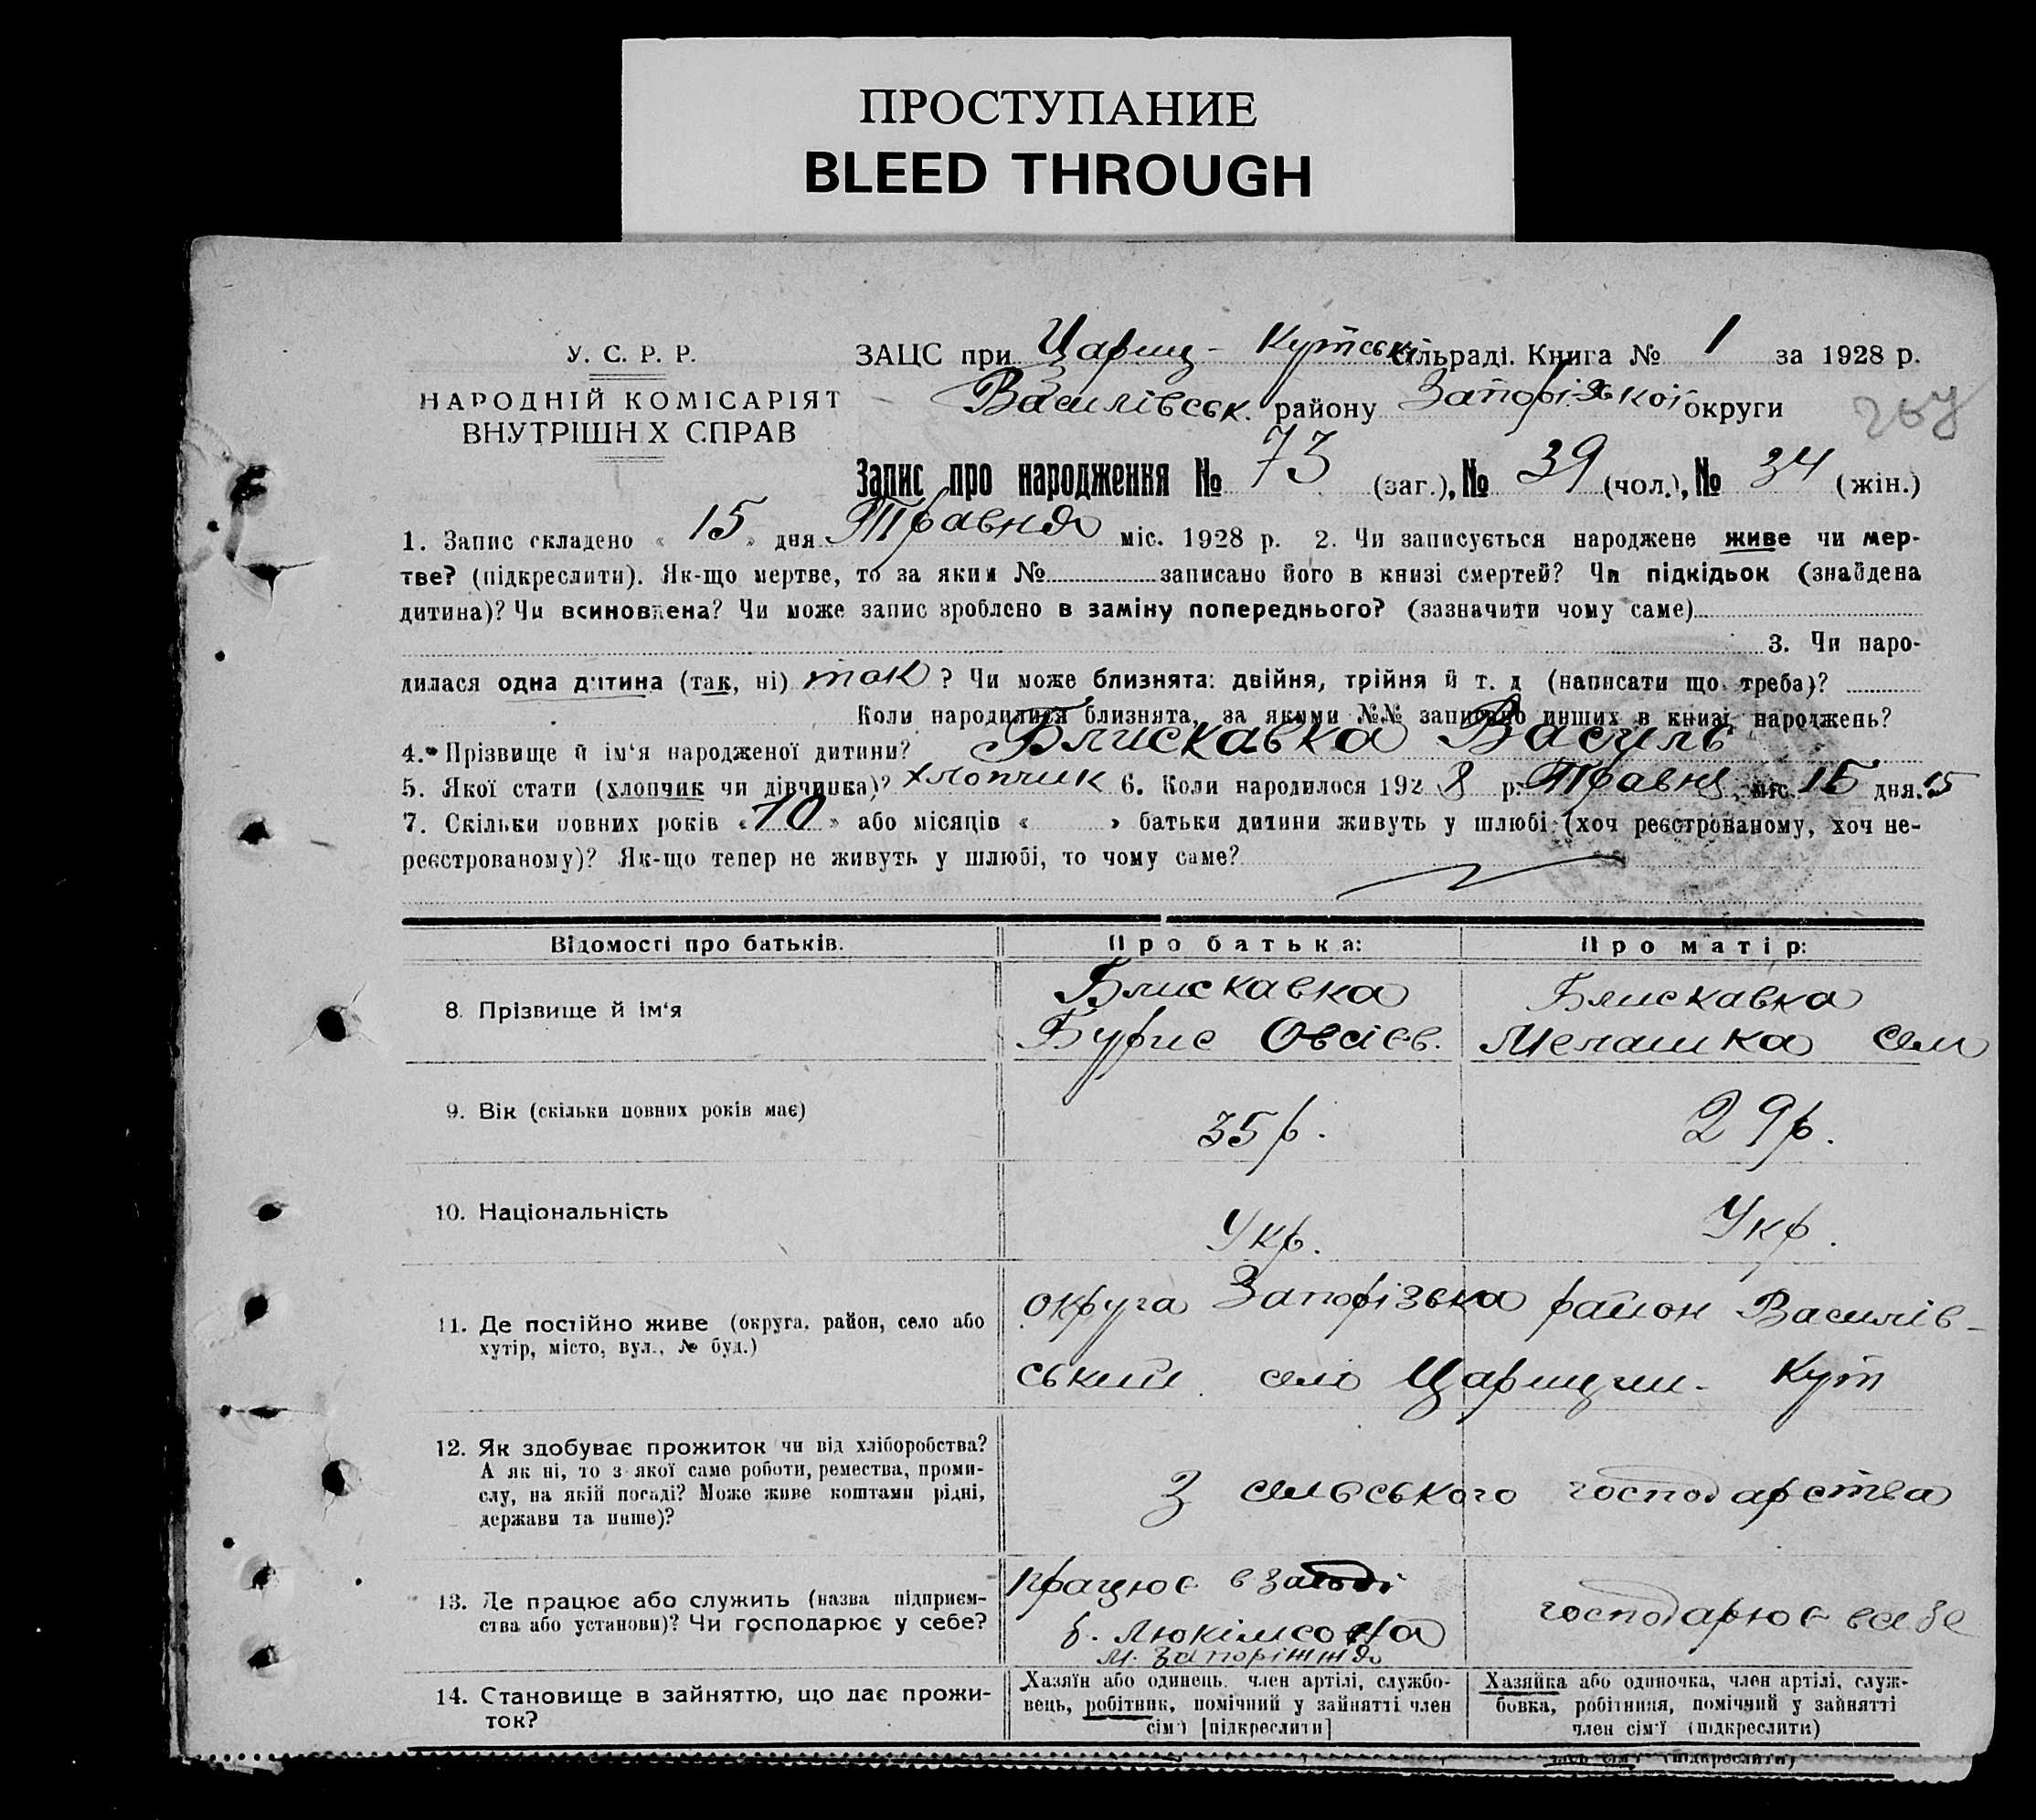 ПРОСТУПАНИЕ
BLEED THROUGH
У. С. Р. Р.
НАРОДНІЙ КОМІСАРІЯТ
ВНУТРІШН Х СПРАВ
ЗАЦС при Цариц-Кутськ сільраді. Книга № 1 за 1928 р.
Василівськ. району Запорізької округи
Запис про народження № 73 (заг.), № 39 (чол.), № 34 (жін.)
1. Запис складено « 15 » дня Травня міс. 1928 р. 2. Чи записується народжене живе чи мер-
тве? (підкреслити). Як-що мертве, то за яким № записано його в книзі смертей? Чи підкідьок (знайдена
дитина)? Чи всиновлена? Чи може запис зроблено в заміну попереднього? (зазначити чому саме)
3. Чи наро-
дилася одна дитина (так, ні) так ? Чи може близнята: двійня, трійня й т. д (написати що треба)?
Коли народилися близнята, за якими №№ записано инших в книзі народжень?
4. Прізвище й ім'я народженої дитини? Блискавка Василь
5. Якої стати (хлопчик чи дівчинка)? хлопчик 6. Коли народилося 192 8 р. Травня міс. 15 дня. 15
7. Скільки повних років « 10 » або місяців « » батьки дитини живуть у шлюбі (хоч реєстрованому, хоч не-
реєстрованому)? Як-що тепер не живуть у шлюбі, то чому саме?
Відомості про батьків.
Про батька:
Про матір:
8. Прізвище й ім'я
Блискавка
Бурис Овсієв.
Блискавка
Мелашка Сем
9. Вік (скільки повних років має)
35 р.
29 р.
10. Національність
Укр.
Укр.
11. Де постійно живе (округа, район, село або
хутір, місто, вул., № буд.)
округа Запорізька район Василів-
ський село Царицин-Кут
12. Як здобуває прожиток чи від хліборобства?
А як ні, то з якої саме роботи, ремества, проми-
слу, на якій посаді? Може живе коштами рідні,
держави та инше)?
З сельського господарства
13. Де працює або служить (назва підприєм-
ства або установи)? Чи господарює у себе?
працює в заводі
м. Запоріжжя
господарює в себе
14. Становище в зайняттю, що дає прожи-
ток?
Хазяїн або одинець, член артілі, службо-
вець, робітник, помічний у зайнятті член
сім'ї [підкреслити]
Хазяйка або одиночка, член артілі, служ-
бовка, робітниця, помічний у зайнятті
член сім'ї (підкреслити)
член сім'ї (підкреслити)